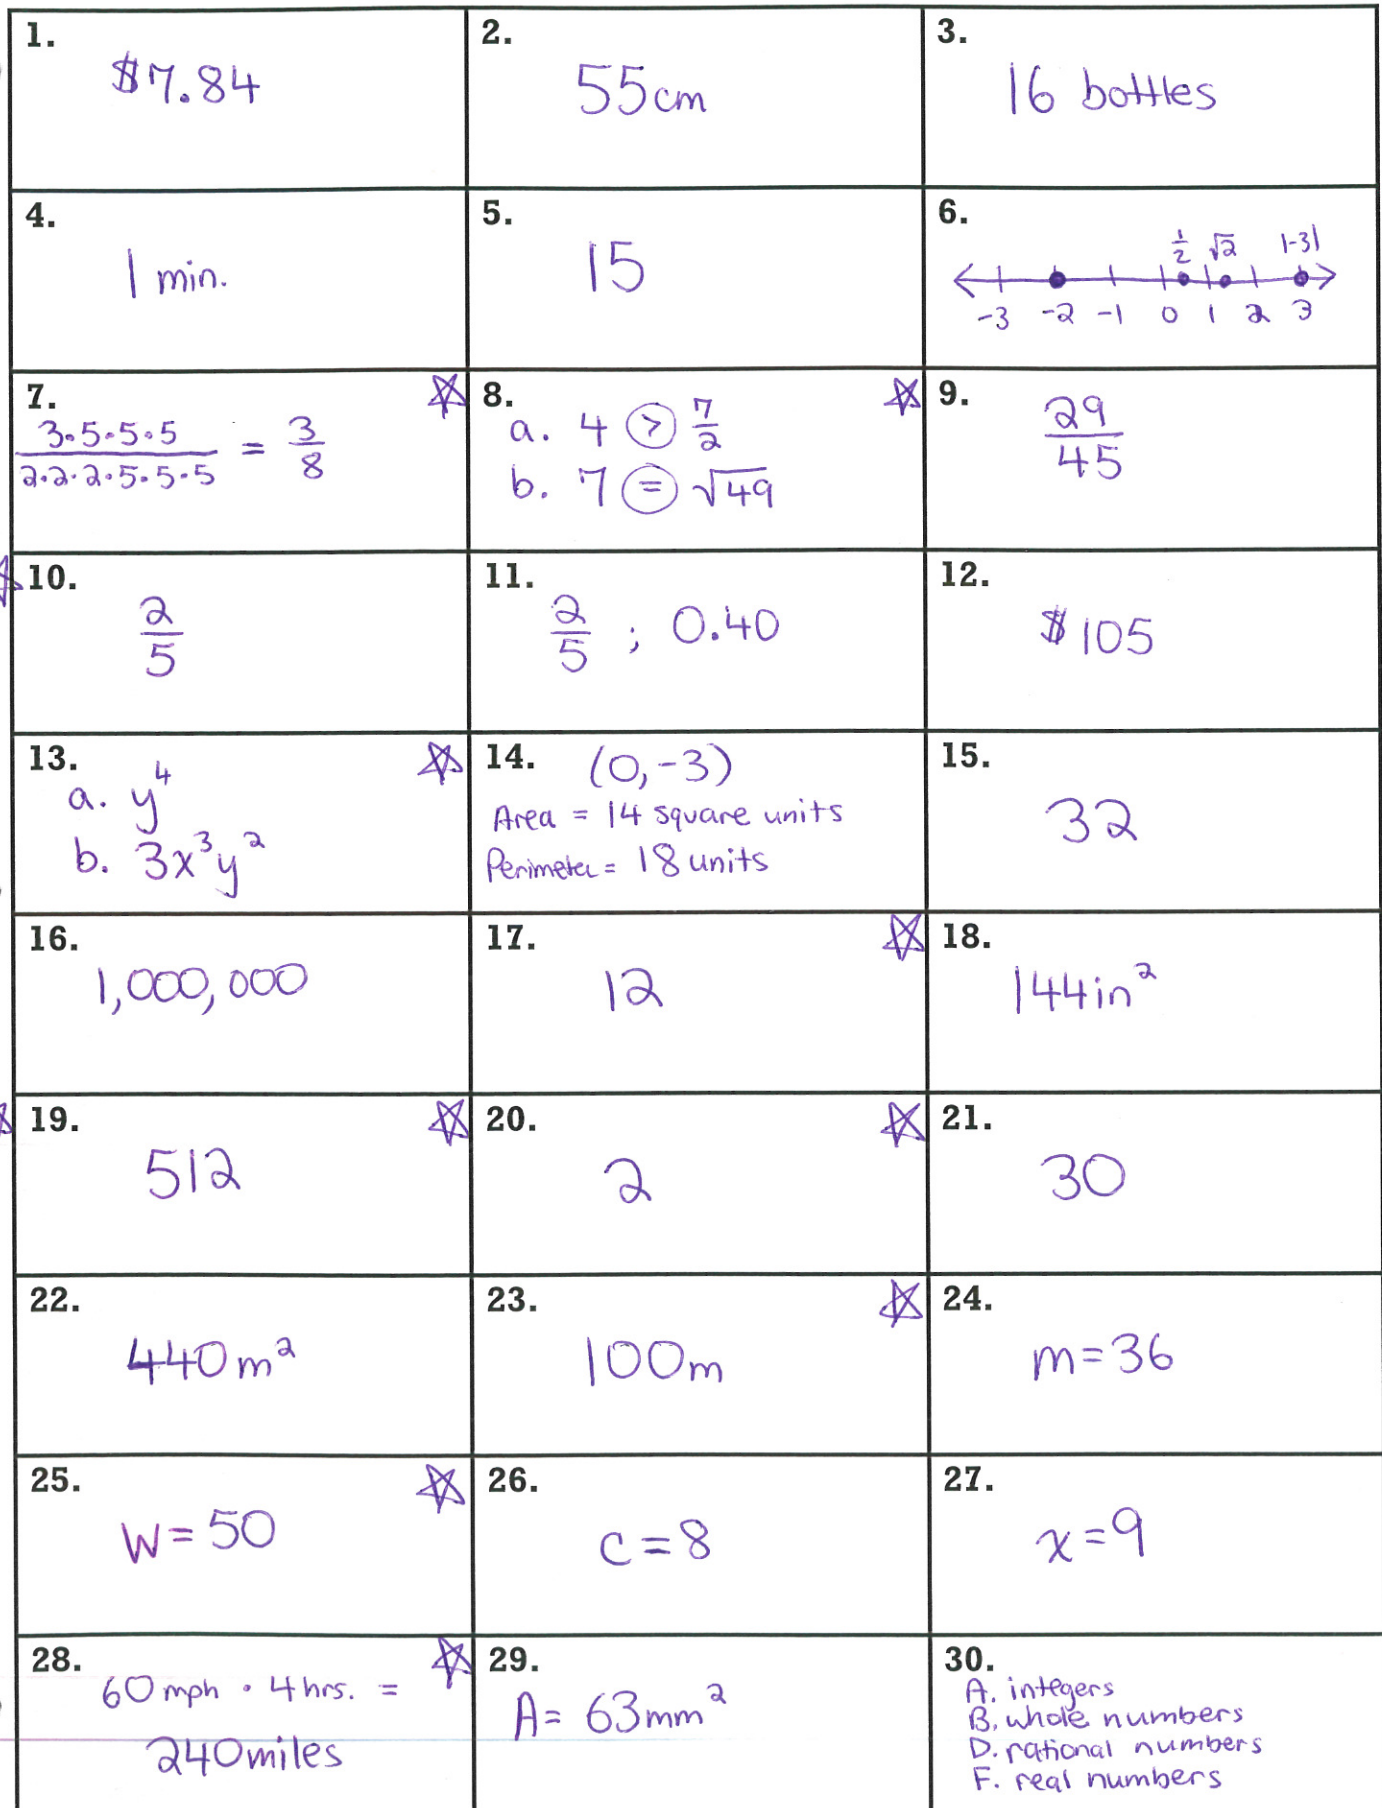 1.
$7.84
2.
55cm
3.
16 bottles
4.
1 min.
5.
15
6.
1/2 √2 |-3|
-3 -2 -1 0 1 2 3
7.
3·5·5·5 / 2·2·2·5·5·5 = 3/8
8.
a. 4 > 7/2
b. 7 = √49
9.
29/45
10.
2/5
11.
2/5 ; 0.40
12.
$105
13.
a. y⁴
b. 3x³y²
14. (0,-3)
Area = 14 square units
Perimeter = 18 units
15.
32
16.
1,000,000
17.
12
18.
144in²
19.
512
20.
2
21.
30
22.
440m²
23.
100m
24.
m=36
25.
W=50
26.
c=8
27.
x=9
28.
60mph · 4hrs. =
240miles
29.
A= 63mm²
30.
A. integers
B. whole numbers
D. rational numbers
F. real numbers